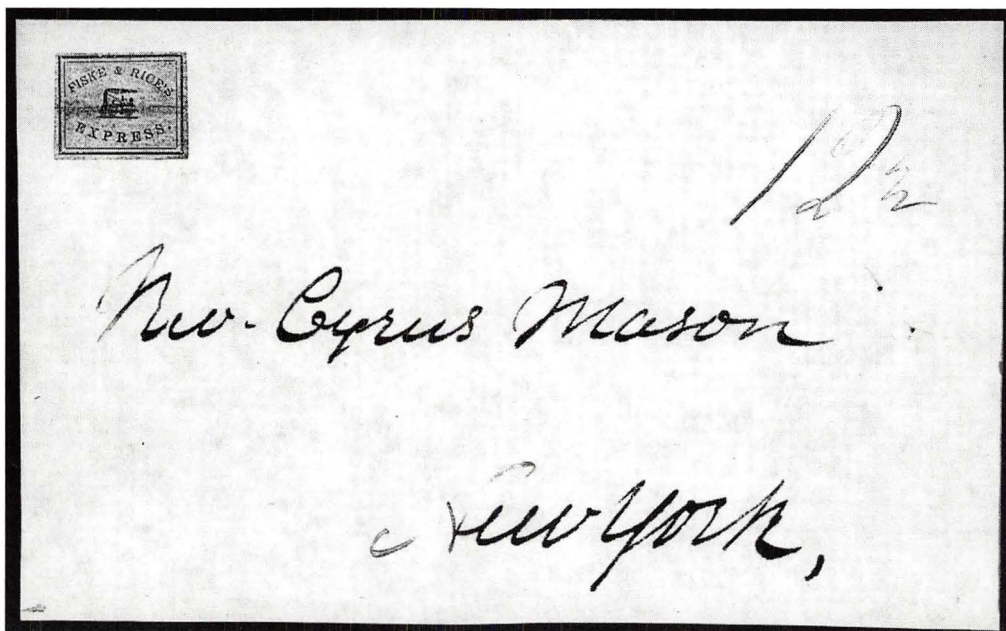 FISKE & RICE'S
EXPRESS.
12 1/2
Rev. Cyrus Mason
New York,